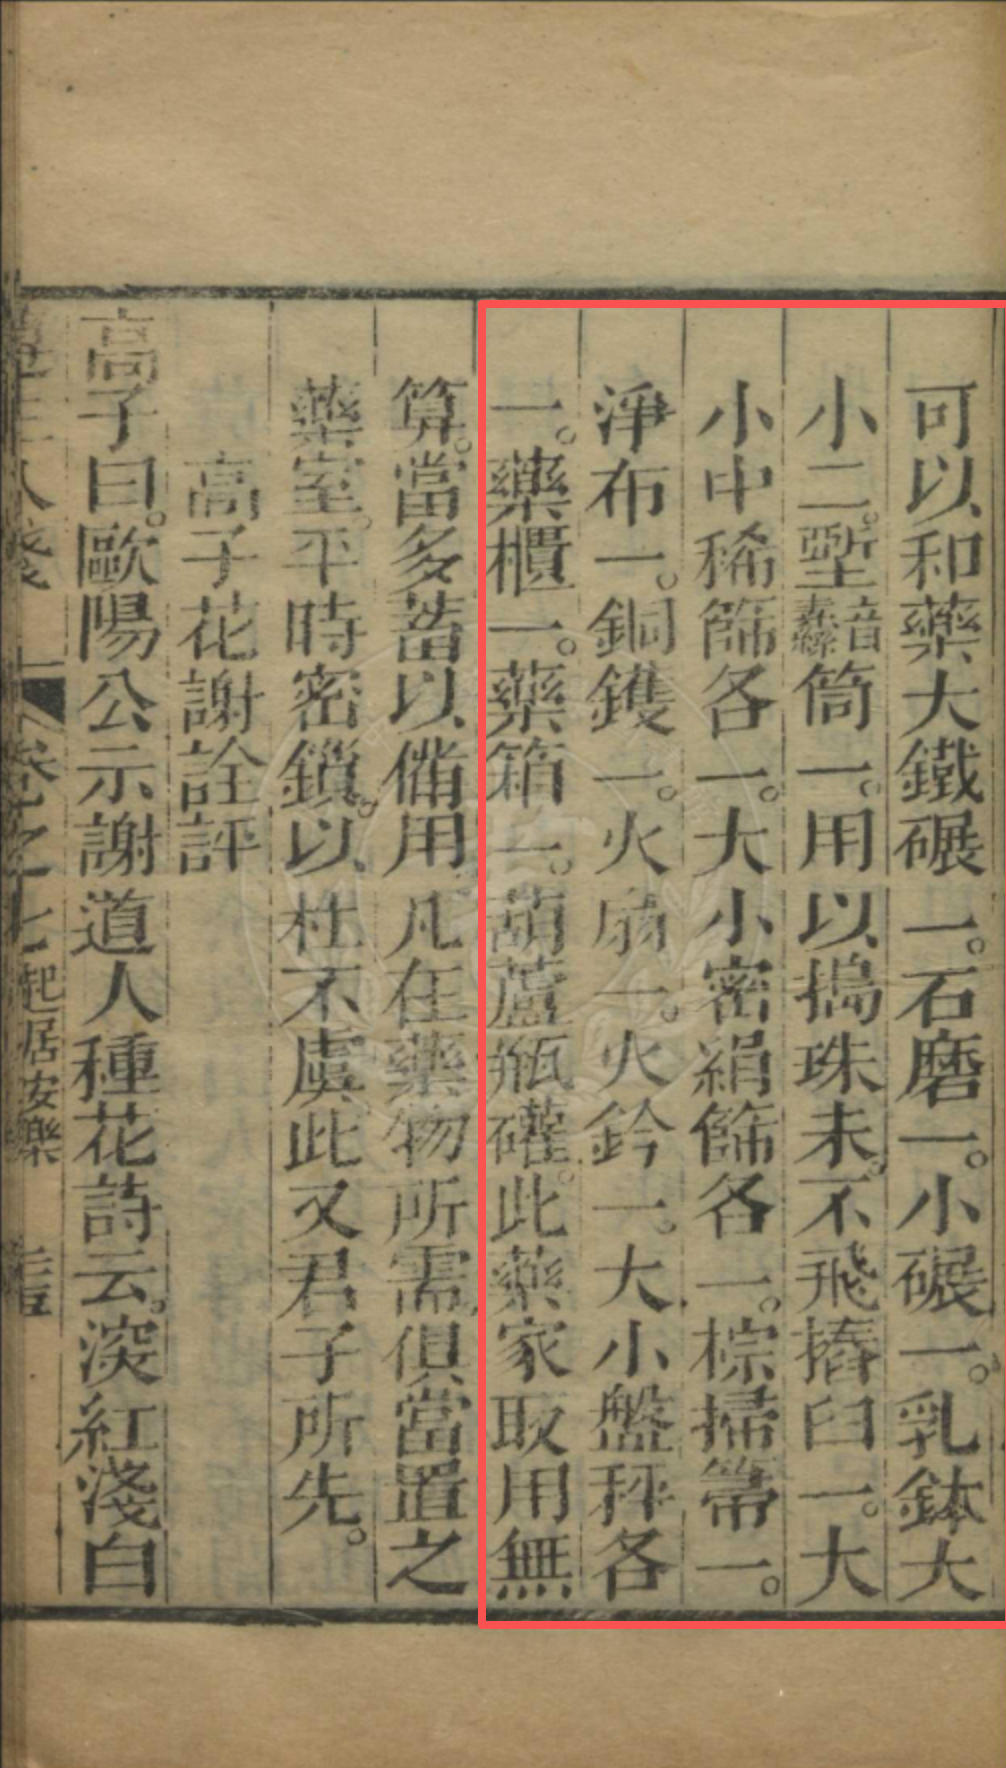 可以和藥大鐵碾一。石磨一。小碾一。乳鉢大
小二。壍音纛筒一。用以搗珠末。不飛撸臼一。大
小中稀篩各一。大小密絹篩各一。棕掃箒一。
淨布一。銅鑊一。火扇一。火鈐一。大小盤秤各
一。藥櫃一。藥箱一。葫蘆瓶礶。此藥家取用無
算。當多蓄以備用。凡在藥物所需俱當置之
藥室。平時密鎖。以杜不虞此又君子所先。
高子花謝詮評
高子曰。歐陽公示謝道人種花詩云。深紅淺白
卷之七 起居安樂